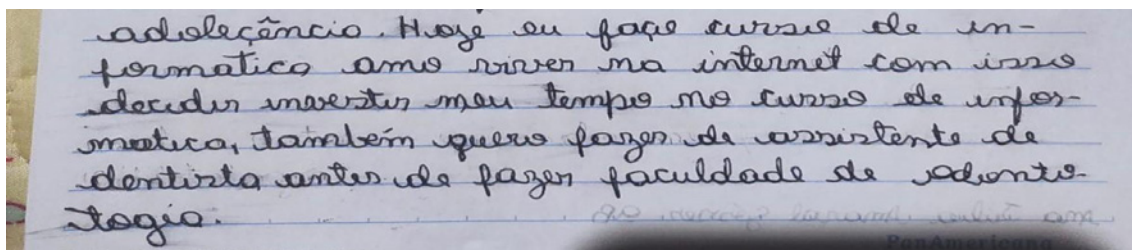 adoleçência. Hoje eu faço curso de in-
formatica amo viver na internet com isso
decidir investir meu tempo no curso de infor-
matica, também quero fazer de assistente de
dentista antes de fazer faculdade de odonto-
logia.
PanAmericana